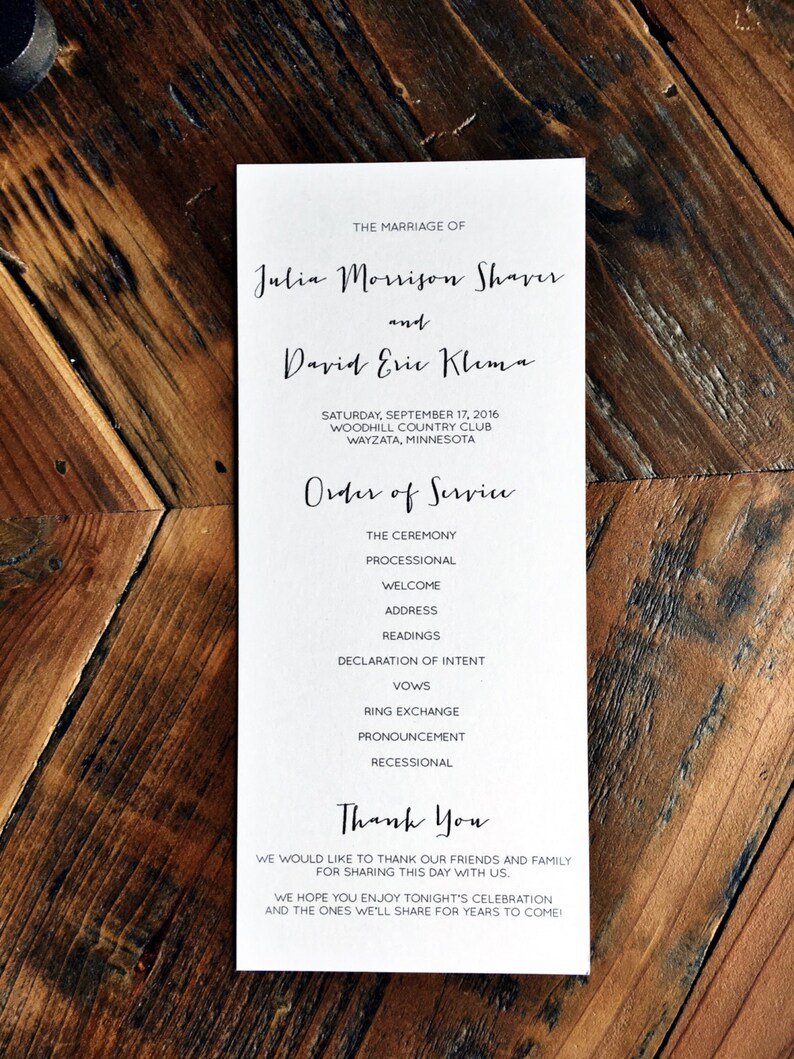 THE MARRIAGE OF
Julia Morrison Shaver
and
David Eric Klema
SATURDAY, SEPTEMBER 17, 2016
WOODHILL COUNTRY CLUB
WAYZATA, MINNESOTA
Order of Service
THE CEREMONY
PROCESSIONAL
WELCOME
ADDRESS
READINGS
DECLARATION OF INTENT
VOWS
RING EXCHANGE
PRONOUNCEMENT
RECESSIONAL
Thank You
WE WOULD LIKE TO THANK OUR FRIENDS AND FAMILY
FOR SHARING THIS DAY WITH US.
WE HOPE YOU ENJOY TONIGHT'S CELEBRATION
AND THE ONES WE'LL SHARE FOR YEARS TO COME!